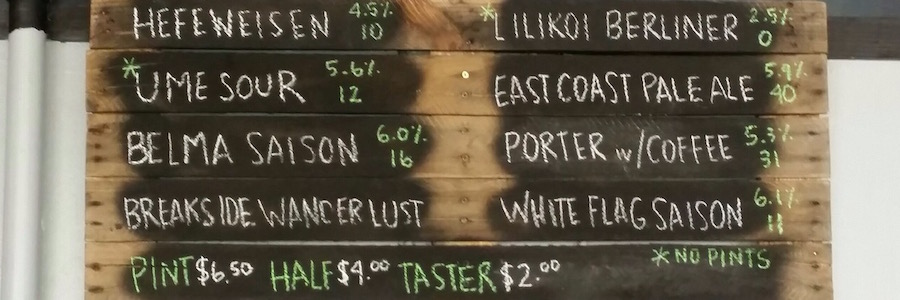 HEFEWEISEN 4.5% 10
*LILIKOI BERLINER 2.5% 0
*UME SOUR 5.6% 12
EAST COAST PALE ALE 5.9% 40
BELMA SAISON 6.0% 16
PORTER w/COFFEE 5.3% 31
BREAKSIDE WANDERLUST
WHITE FLAG SAISON 6.1% 11
PINT $6.50 HALF $4.00 TASTER $2.00
*NO PINTS